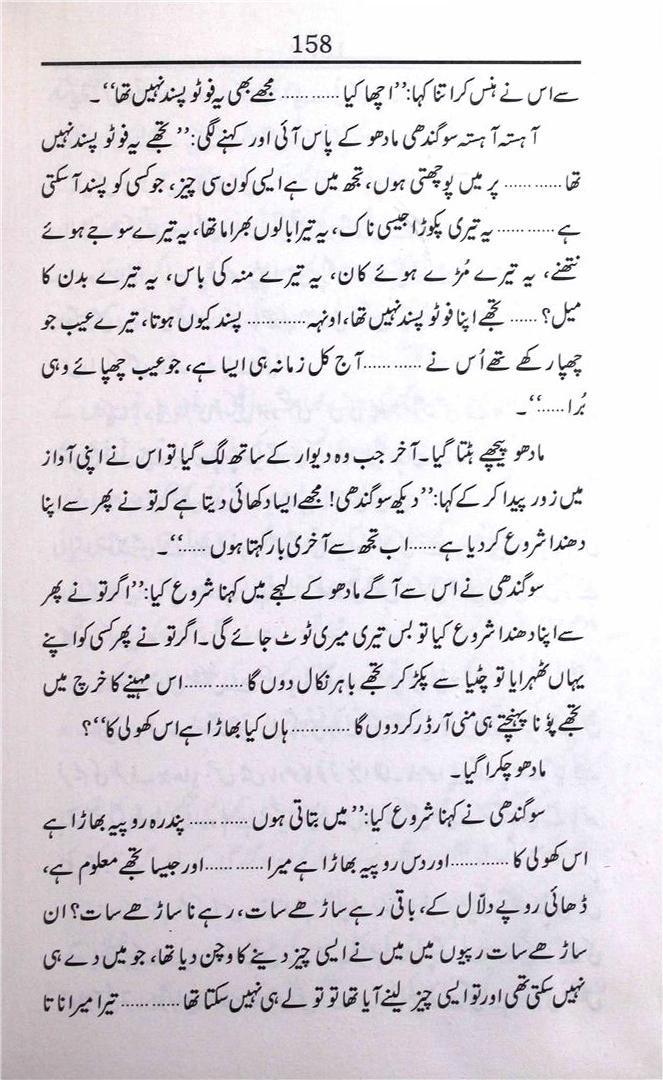 158
سے اس نے ہنس کر اتنا کہا: ’’اچھا کیا ........... مجھے بھی یہ فوٹو پسند نہیں تھا‘‘۔
آہستہ آہستہ سوگندھی مادھو کے پاس آئی اور کہنے لگی: ’’تجھے یہ فوٹو پسند نہیں
تھا ........... پر میں پوچھتی ہوں، تجھ میں ہے ایسی کون سی چیز، جو کسی کو پسند آ سکتی
ہے ........... یہ تیری پکوڑا جیسی ناک، یہ تیرا بالوں بھرا ماتھا، یہ تیرے سوجے ہوئے
نتھنے، یہ تیرے مُڑے ہوئے کان، یہ تیرے منہ کی باس، یہ تیرے بدن کا
میل؟ ...... تجھے اپنا فوٹو پسند نہیں تھا، اونہہ ........... پسند کیوں ہوتا، تیرے عیب جو
چھپا رکھے تھے اُس نے ........... آج کل زمانہ ہی ایسا ہے، جو عیب چھپائے وہی
بُرا .....‘‘۔
مادھو پیچھے ہٹتا گیا۔ آخر جب وہ دیوار کے ساتھ لگ گیا تو اس نے اپنی آواز
میں زور پیدا کر کے کہا: ’’دیکھ سوگندھی! مجھے ایسا دکھائی دیتا ہے کہ تو نے پھر سے اپنا
دھندا شروع کر دیا ہے ...... اب تجھ سے آخری بار کہتا ہوں .....‘‘۔
سوگندھی نے اس سے آگے مادھو کے لہجے میں کہنا شروع کیا: ’’اگر تو نے پھر
سے اپنا دھندا شروع کیا تو بس تیری میری ٹوٹ جائے گی۔ اگر تو نے پھر کسی کو اپنے
یہاں ٹھہرایا تو چٹیا سے پکڑ کر تجھے باہر نکال دوں گا ........... اس مہینے کا خرچ میں
تجھے پونا پہنچتے ہی منی آرڈر کر دوں گا ........... ہاں کیا بھاڑا ہے اس کھولی کا‘‘؟
مادھو چکرا گیا۔
سوگندھی نے کہنا شروع کیا: ’’میں بتاتی ہوں ........... پندرہ روپیہ بھاڑا ہے
اس کھولی کا ........... اور دس روپیہ بھاڑا ہے میرا ........... اور جیسا تجھے معلوم ہے،
ڈھائی روپے دلاّل کے، باقی رہے ساڑھے سات، رہے نا ساڑھے سات؟ ان
ساڑھے سات رپیوں میں میں نے ایسی چیز دینے کا وچن دیا تھا، جو میں دے ہی
نہیں سکتی تھی اور تو ایسی چیز لینے آیا تھا تو تو لے ہی نہیں سکتا تھا ........... تیرا میرا ناتا